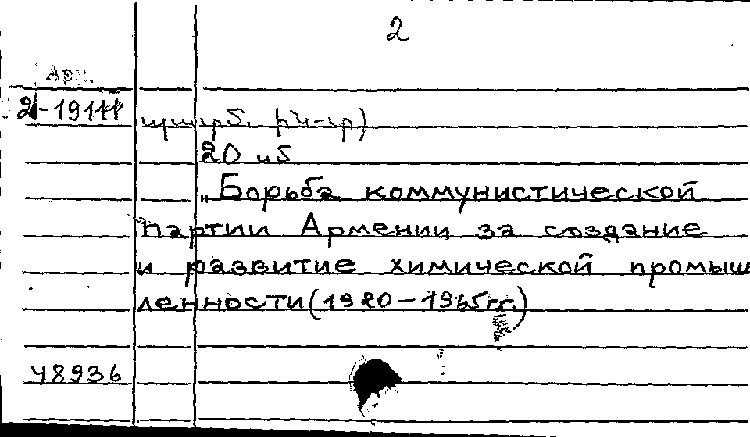 2
Арм.
2-19111
պատճ. թև-ր)
20 սմ
„Борьба коммунистической
партии Армении за создание
и развитие химической промыш
ленности (1920-1965гг.)
48936